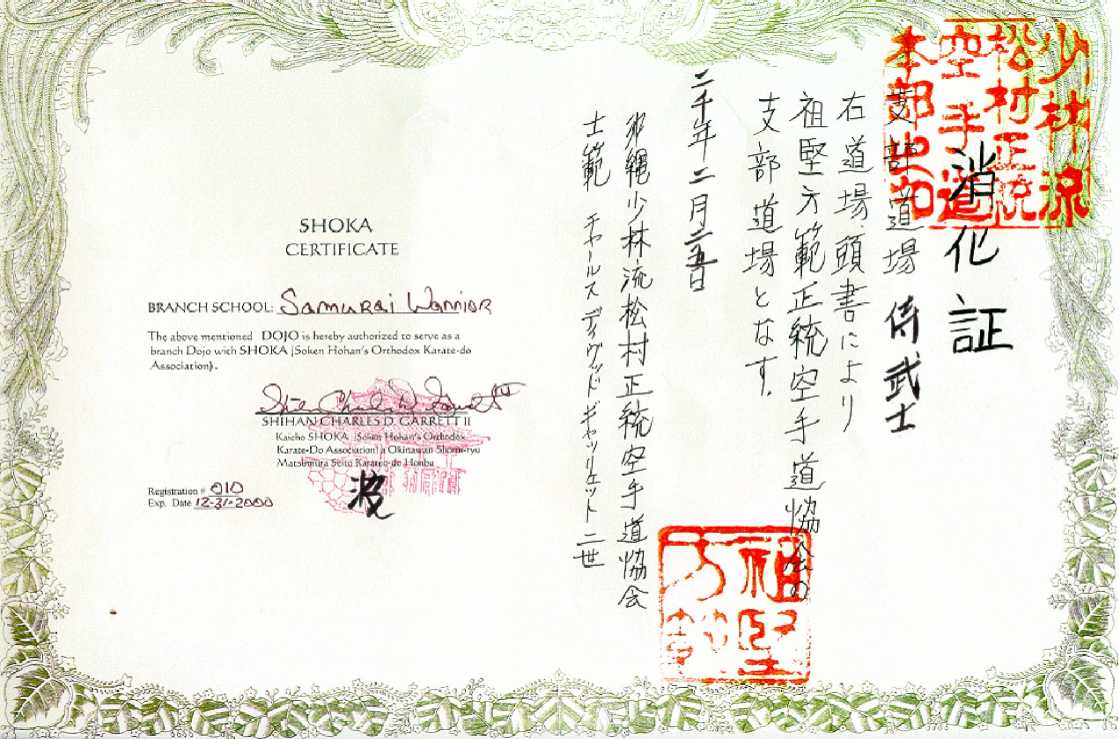 少林流
松村正統
空手道
本部之印
消化証
支部道場 侍武士
右道場、頭書により
祖堅方範正統空手道協会の
支部道場となす.
二千年二月二五日
沖縄少林流松村正統空手道協会
士範 チャールス デイヴッド ギャッリエット 二世
祖堅
方範
SHOKA
CERTIFICATE
BRANCH SCHOOL: Samurai Warrior
The above mentioned DOJO is hereby authorized to serve as a
branch Dojo with SHOKA (Soken Hohan's Orthodox Karate-do
Association).
SHIHAN CHARLES D. GARRETT II
Kaicho SHOKA (Soken Hohan's Orthodox
Karate-Do Association) a Okinawan Shorin-ryu
Matsumura Seito Karate-do Honbu
Registration # 010
Exp. Date 12-31-2000